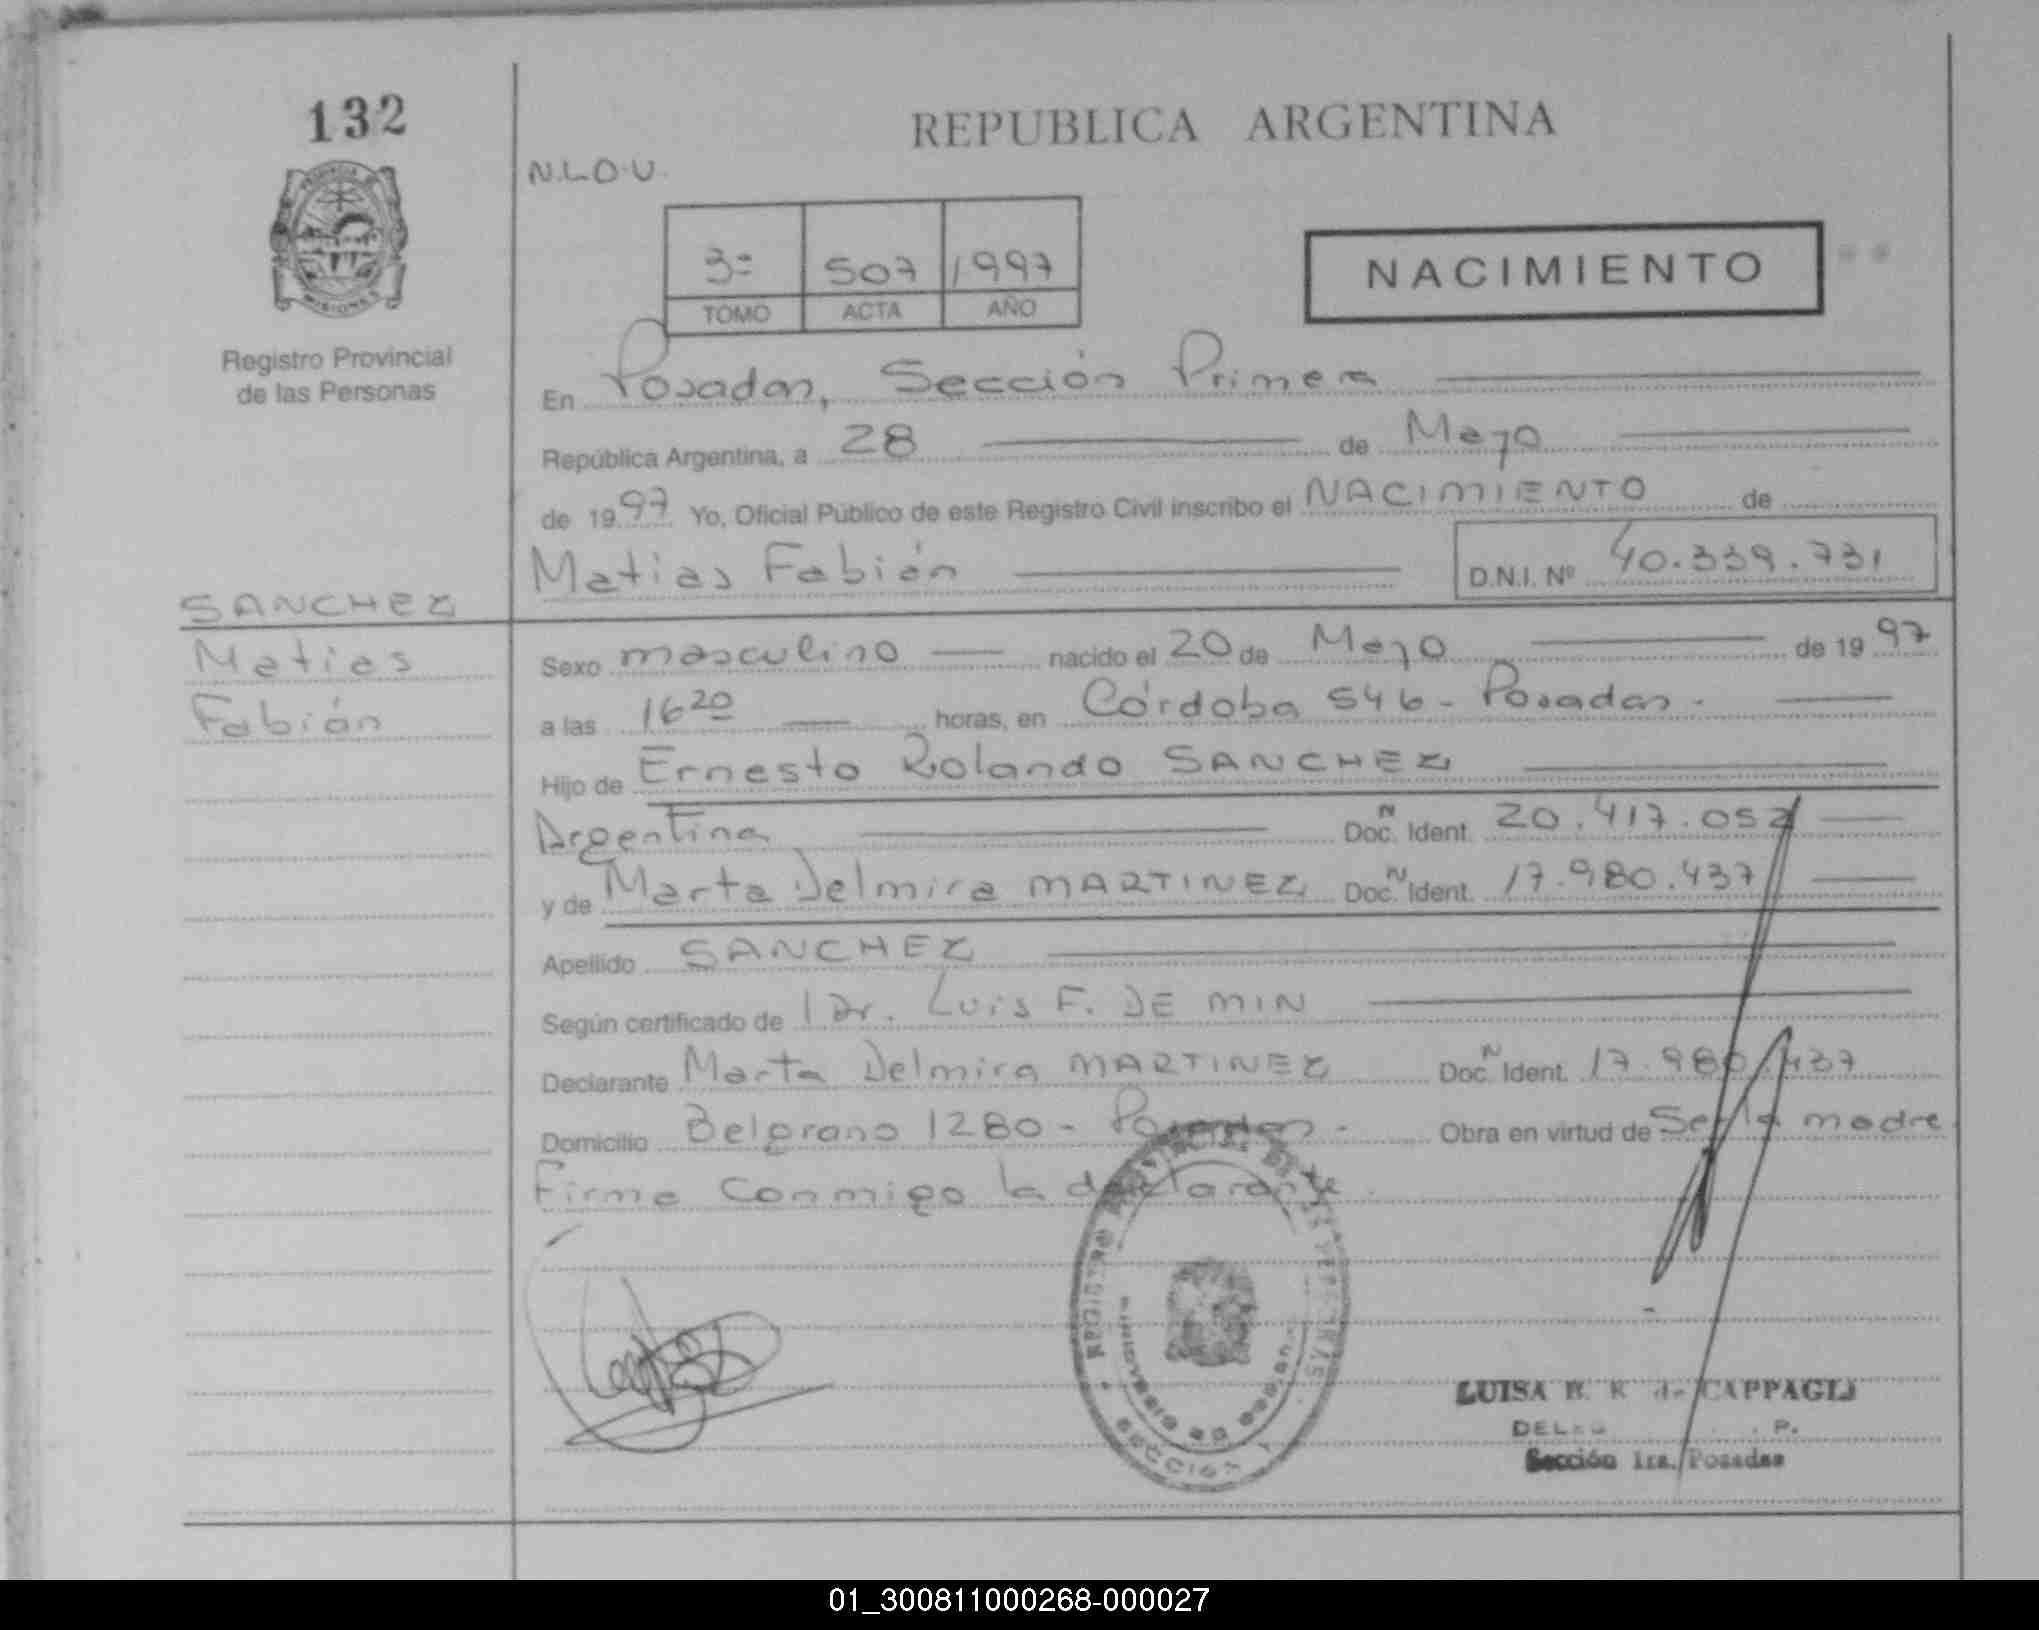 132
REPUBLICA ARGENTINA
N.L.O.U.
3º 507 1997
TOMO ACTA AÑO
NACIMIENTO
MISIONES
Registro Provincial
de las Personas
En Posadas, Sección Primera
República Argentina, a 28 de Mayo
de 1997 Yo, Oficial Público de este Registro Civil inscribo el NACIMIENTO de
Matias Fabián D.N.I. Nº 40.339.731
SANCHEZ
Matias
Fabián
Sexo masculino nacido el 20 de Mayo de 1997
a las 16 20 horas, en Córdoba 546 - Posadas.
Hijo de Ernesto Rolando SANCHEZ
Argentina Doc. Ident. 20.417.052
y de Marta Delmira MARTINEZ Doc. Ident. 17.980.437
Apellido SANCHEZ
Según certificado de Dr. Luis F. DE MIN
Declarante Marta Delmira MARTINEZ Doc. Ident. 17.980.437
Domicilio Belgrano 1280 - Posadas - Obra en virtud de Ser la madre
Firma Conmigo la declarante.
LUISA de CAPPAGLI
Sección 1ra. Posadas
01_300811000268-000027